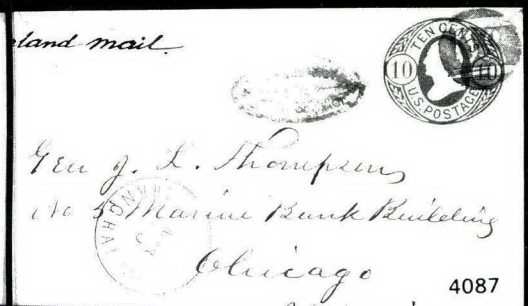 land mail.
TEN CENTS
10 10
U.S. POSTAGE
Gen J. L. Thompson
No 5 Marine Bank Building
Chicago
4087